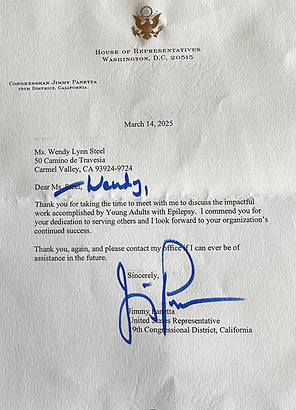 HOUSE OF REPRESENTATIVES
WASHINGTON, D.C. 20515
CONGRESSMAN JIMMY PANETTA
19TH DISTRICT, CALIFORNIA
March 14, 2025
Ms. Wendy Lynn Steel
50 Camino de Travesia
Carmel Valley, CA 93924-9724
Dear Ms. Steel, Wendy,
Thank you for taking the time to meet with me to discuss the impactful
work accomplished by Young Adults with Epilepsy. I commend you for
your dedication to serving others and I look forward to your organization's
continued success.
Thank you, again, and please contact my office if I can ever be of
assistance in the future.
Sincerely,
Jimmy Panetta
United States Representative
19th Congressional District, California